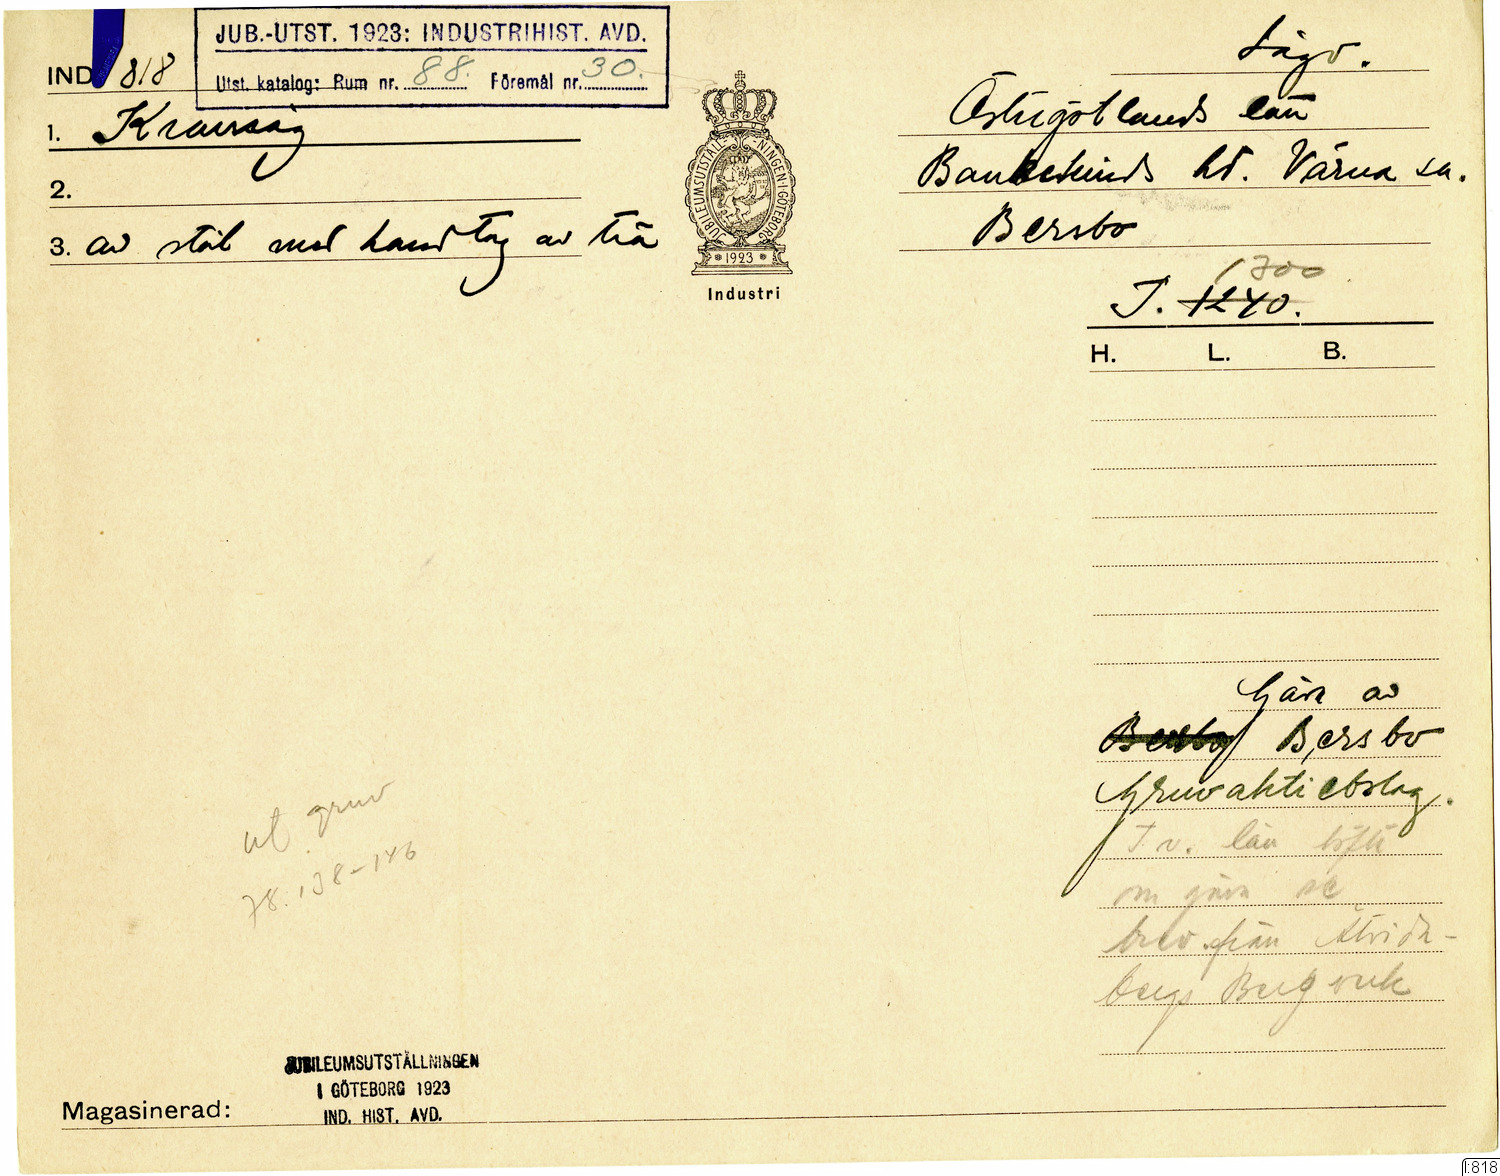 JUB.-UTST. 1923: INDUSTRIHIST. AVD.
Utst. katalog: Rum nr. 88. Föremål nr. 30.
IND. 818
1. Kransåg
2.
3. av stål med handtag av trä
JUBILEUMSUTSTÄLLNINGEN I GÖTEBORG
* 1923 *
Industri
Sågv.
Östergötlands län
Bankekinds hd. Värna sn.
Bersbo
1700
T. 1240.
H. L. B.
Gåva av
Bersbo Bersbo
Gruvaktiebolag.
T.v. lån
om gåva se
brev från Åtvida-
bergs Bergverk
ut gruv
78.138-146
JUBILEUMSUTSTÄLLNINGEN
I GÖTEBORG 1923
IND. HIST. AVD.
Magasinerad:
I:818